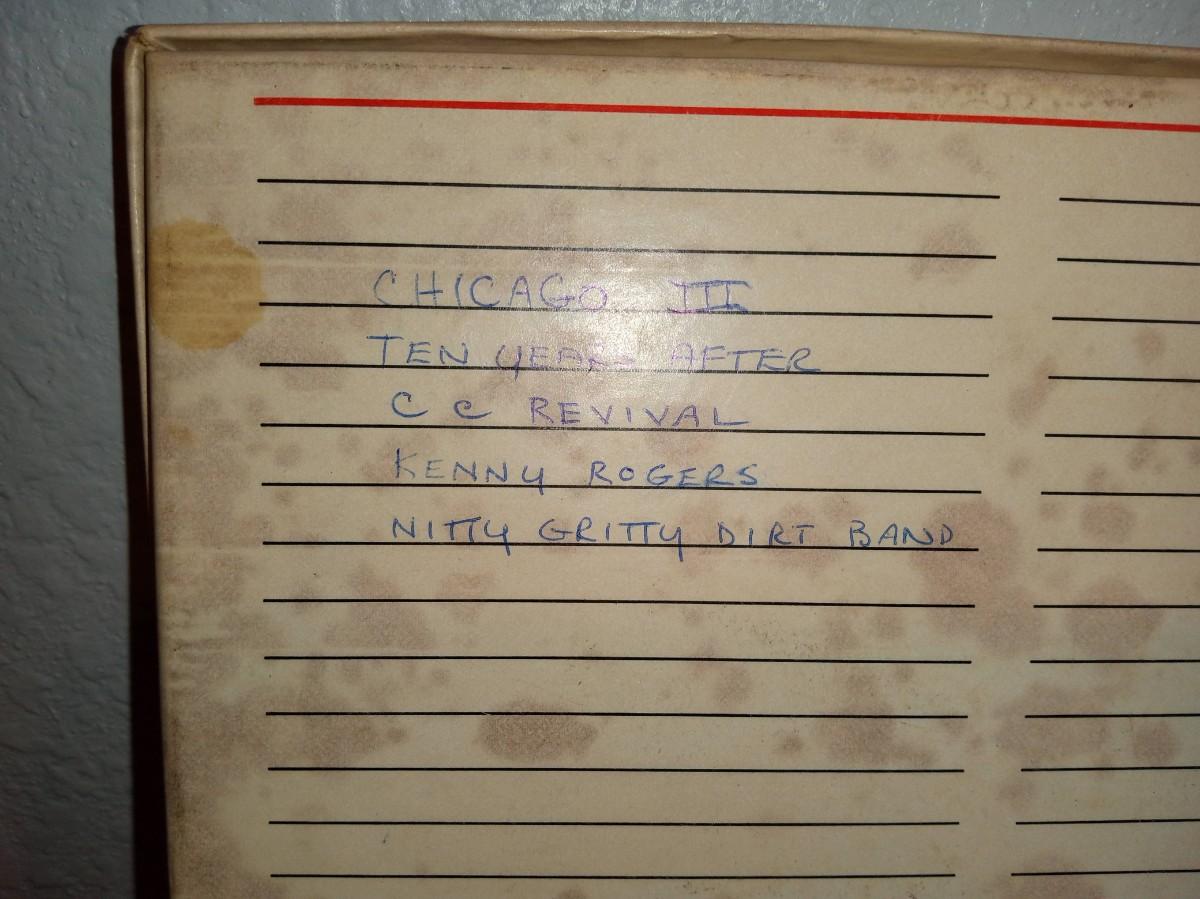 CHICAGO III
TEN YEARS AFTER
C C REVIVAL
KENNY ROGERS
NITTY GRITTY DIRT BAND